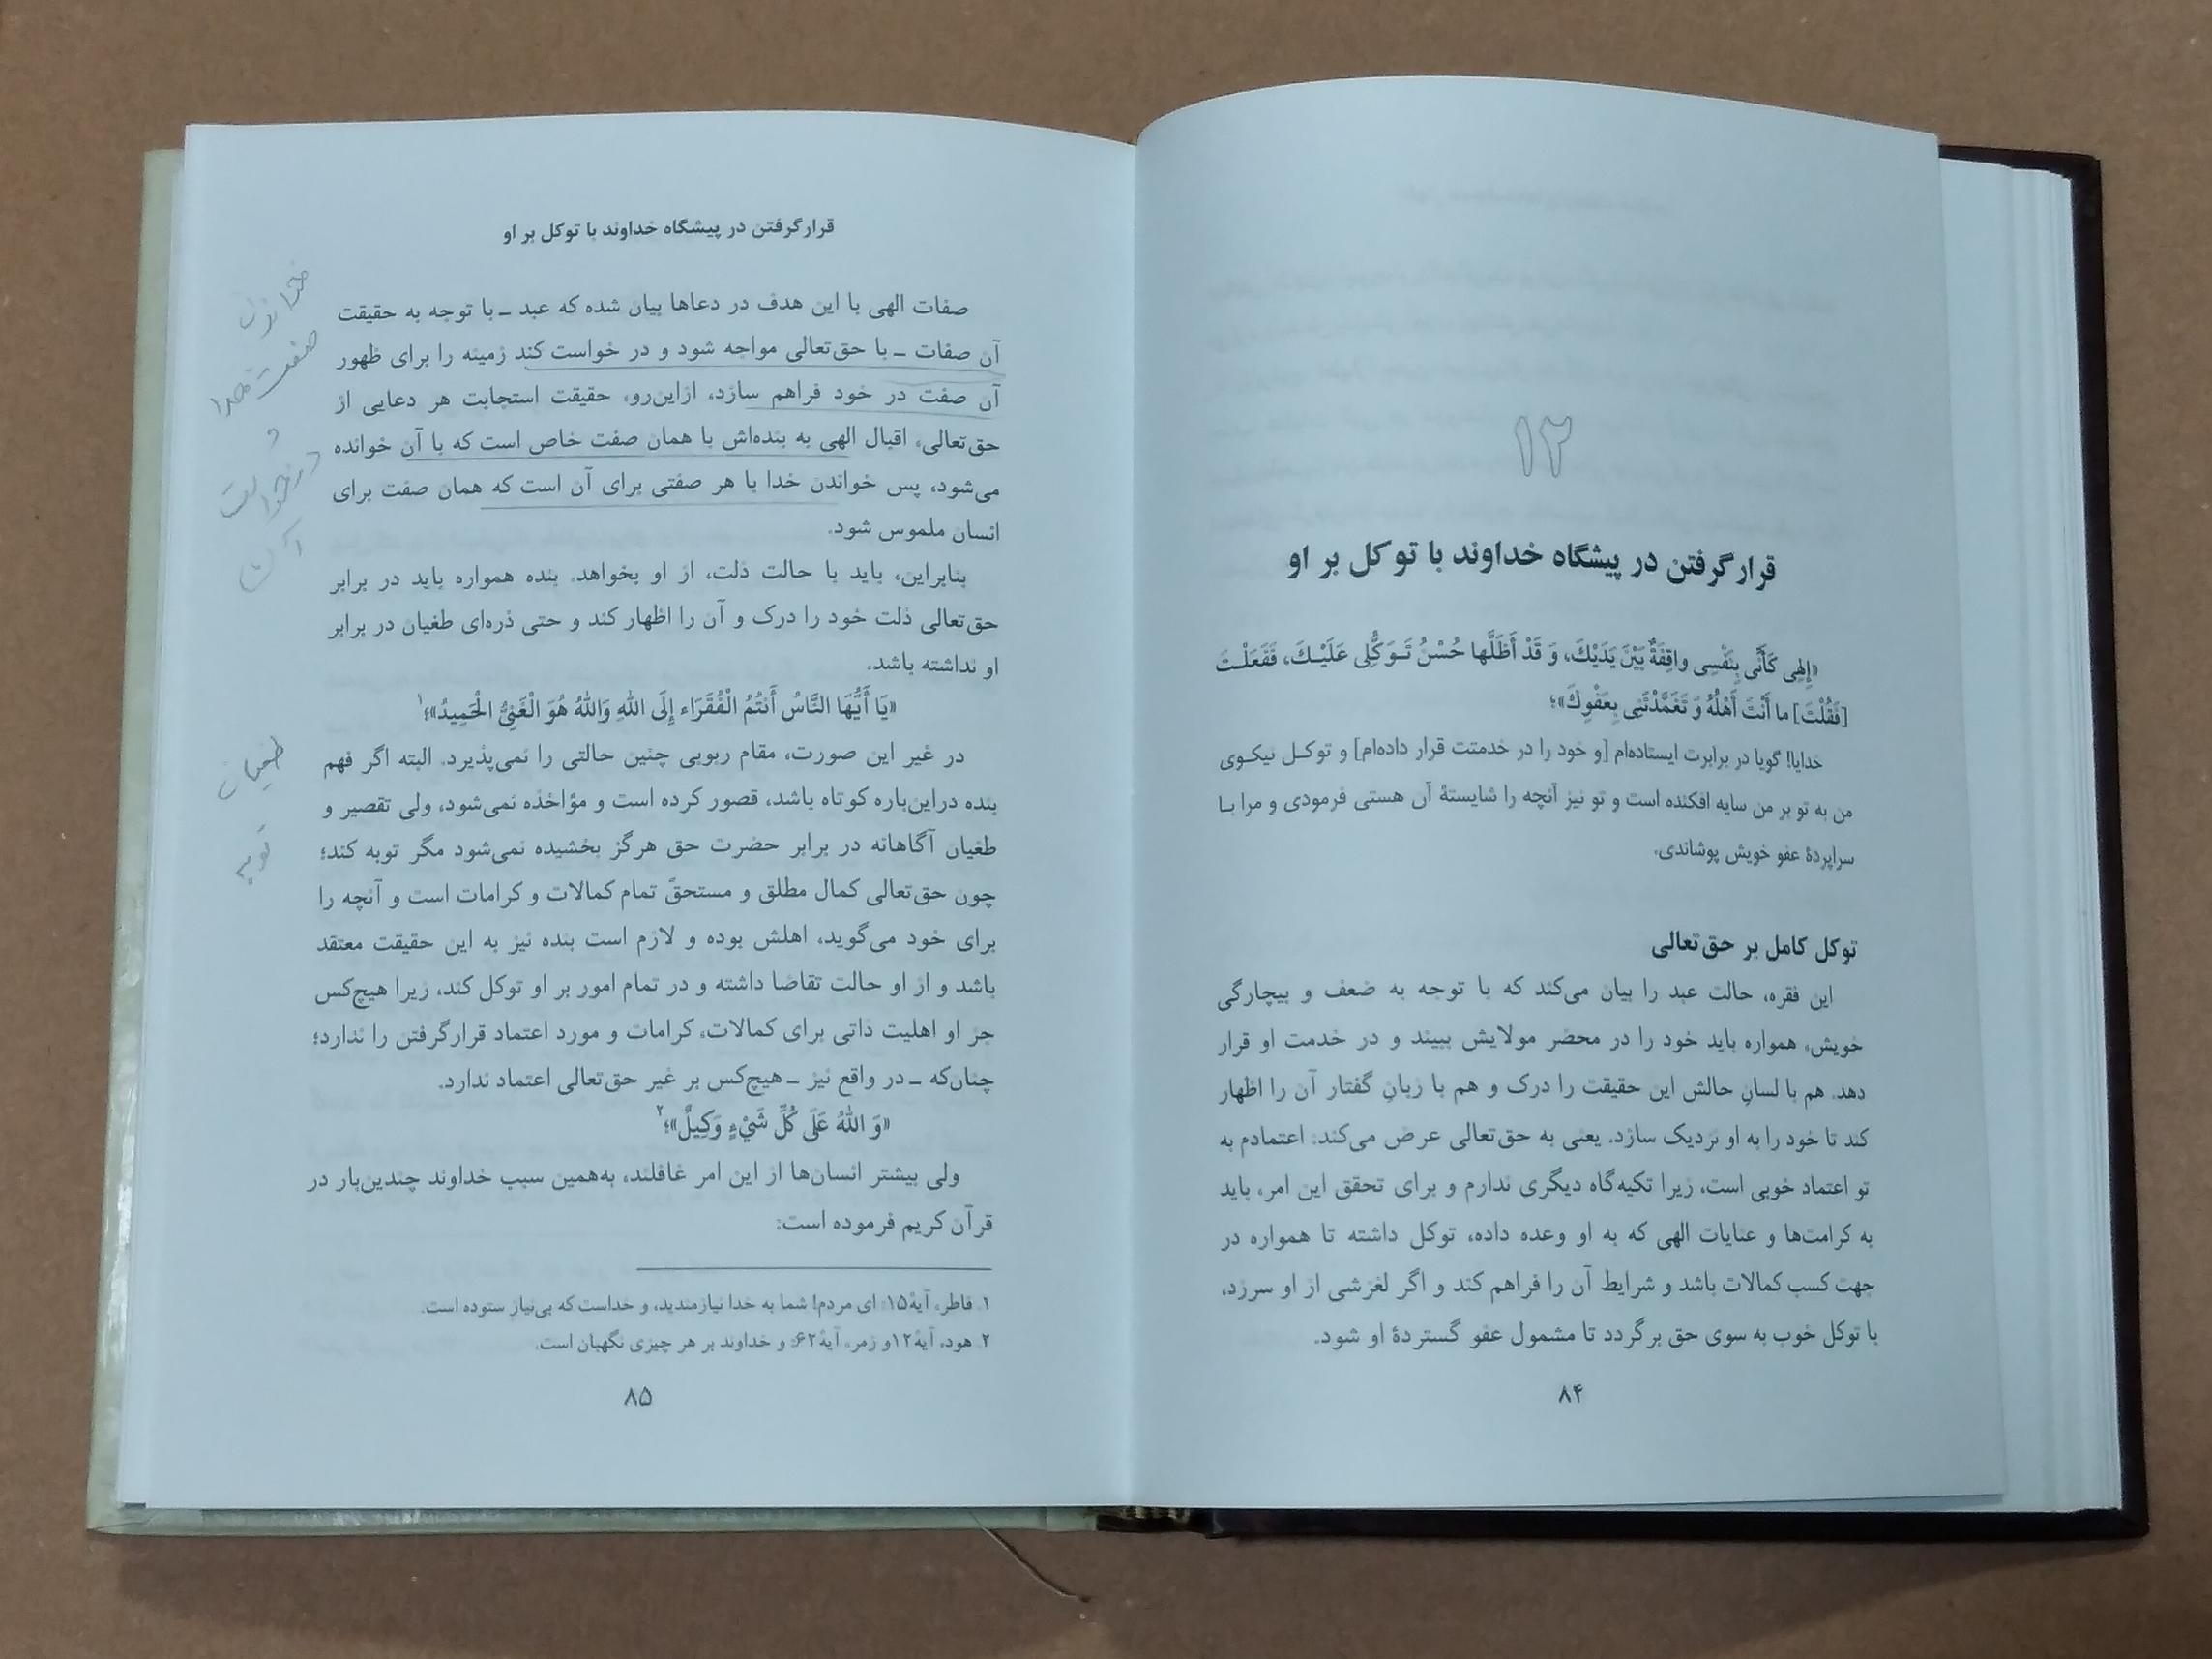 ۱۲
قرارگرفتن در پیشگاه خداوند با توکل بر او
«إِلهِی کَأَنِّی بِنَفْسِی واقِفَةٌ بَیْنَ یَدَیْكَ، وَ قَدْ أَظَلَّها حُسْنُ تَـوَکُّلِی عَلَیْـكَ، فَفَعَلْـتَ
[فَقُلْتَ] ما أَنْتَ أَهْلُهُ وَ تَغَمَّدْتَنِی بِعَفْوِكَ»؛
خدایا! گویا در برابرت ایستاده‌ام [و خود را در خدمتت قرار داده‌ام] و توکـل نیکـوی
من به تو بر من سایه افکنده است و تو نیز آنچه را شایستهٔ آن هستی فرمودی و مرا بـا
سراپردهٔ عفو خویش پوشاندی.
توکل کامل بر حق‌تعالی
این فقره، حالت عبد را بیان می‌کند که با توجه به ضعف و بیچارگی
خویش، همواره باید خود را در محضر مولایش ببیند و در خدمت او قرار
دهد. هم با لسانِ حالش این حقیقت را درک و هم با زبانِ گفتار آن را اظهار
کند تا خود را به او نزدیک سازد. یعنی به حق‌تعالی عرض می‌کند: اعتمادم به
تو اعتماد خوبی است، زیرا تکیه‌گاه دیگری ندارم و برای تحقق این امر، باید
به کرامت‌ها و عنایات الهی که به او وعده داده، توکل داشته تا همواره در
جهت کسب کمالات باشد و شرایط آن را فراهم کند و اگر لغزشی از او سرزد،
با توکل خوب به سوی حق برگردد تا مشمول عفو گستردهٔ او شود.
۸۴
قرارگرفتن در پیشگاه خداوند با توکل بر او
صفات الهی با این هدف در دعاها بیان شده که عبد ـ با توجه به حقیقت
آن صفات ـ با حق‌تعالی مواجه شود و در خواست کند زمینه را برای ظهور
آن صفت در خود فراهم سازد، ازاین‌رو، حقیقت استجابت هر دعایی از
حق‌تعالی، اقبال الهی به بنده‌اش با همان صفت خاص است که با آن خوانده
می‌شود، پس خواندن خدا با هر صفتی برای آن است که همان صفت برای
انسان ملموس شود.
بنابراین، باید با حالت ذلت، از او بخواهد. بنده همواره باید در برابر
حق‌تعالی ذلت خود را درک و آن را اظهار کند و حتی ذره‌ای طغیان در برابر
او نداشته باشد.
«یَا أَیُّهَا النَّاسُ أَنْتُمُ الْفُقَرَاء إِلَی اللهِ وَاللهُ هُوَ الْغَنِیُّ الْحَمِیدُ»؛۱
در غیر این صورت، مقام ربوبی چنین حالتی را نمی‌پذیرد. البته اگر فهم
بنده دراین‌باره کوتاه باشد، قصور کرده است و مؤاخذه نمی‌شود، ولی تقصیر و
طغیان آگاهانه در برابر حضرت حق هرگز بخشیده نمی‌شود مگر توبه کند؛
چون حق‌تعالی کمال مطلق و مستحقّ تمام کمالات و کرامات است و آنچه را
برای خود می‌گوید، اهلش بوده و لازم است بنده نیز به این حقیقت معتقد
باشد و از او حالت تقاضا داشته و در تمام امور بر او توکل کند، زیرا هیچ‌کس
جز او اهلیت ذاتی برای کمالات، کرامات و مورد اعتماد قرارگرفتن را ندارد؛
چنان‌که ـ در واقع نیز ـ هیچ‌کس بر غیر حق‌تعالی اعتماد ندارد.
«وَ اللهُ عَلَی کُلِّ شَیْءٍ وَکِیلٌ»؛۲
ولی بیشتر انسان‌ها از این امر غافلند، به‌همین سبب خداوند چندین‌بار در
قرآن کریم فرموده است:
۱. فاطر، آیهٔ۱۵: ای مردم! شما به خدا نیازمندید، و خداست که بی‌نیاز ستوده است.
۲. هود، آیهٔ۱۲و زمر، آیهٔ۶۲: و خداوند بر هر چیزی نگهبان است.
۸۵
صفت خدا
و
درخواست
آن
طغیان
توبه